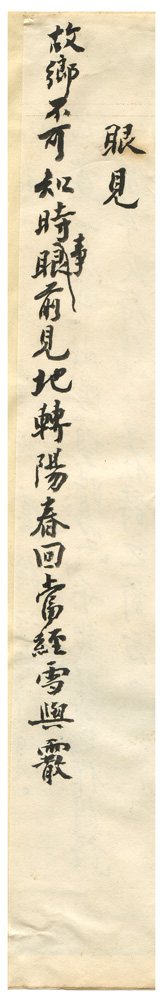 眼見
故鄉不可知時事眼前見地轉陽春回當經雪與霰